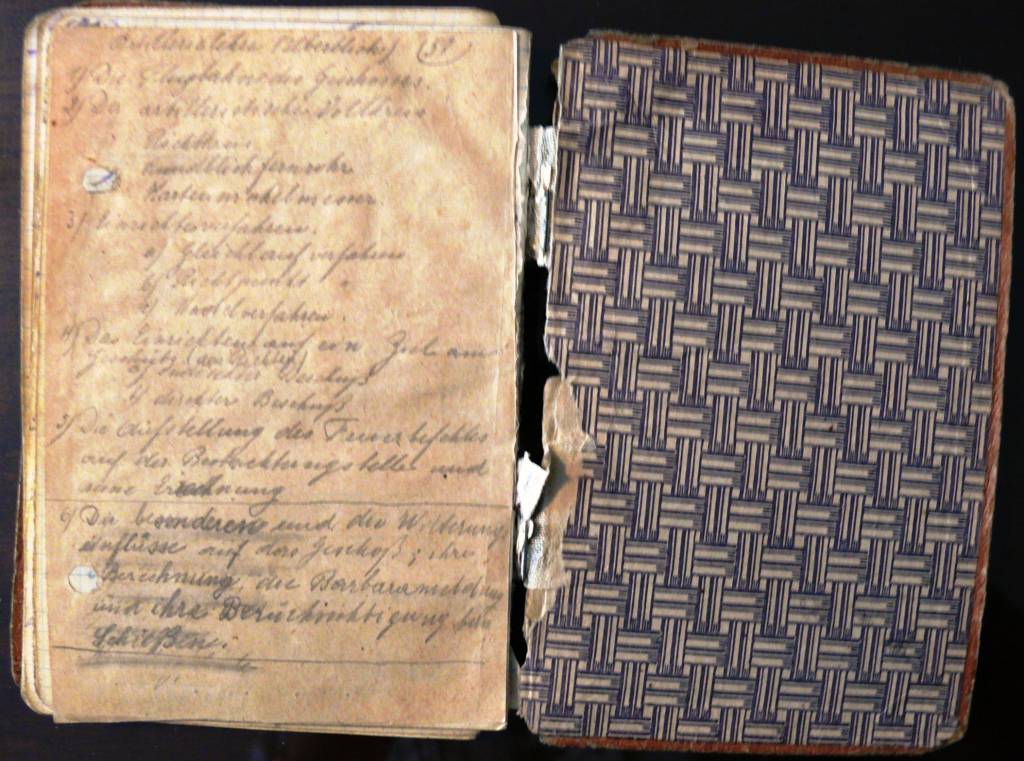 Artillerielehre (51)
1) Die Flugbahn des Geschosses.
2) Der artilleristische Vollkreis
Richtkreis
Rundblickfernrohr
Kartenwinkelmesser.
3) Einrichteverfahren.
a) Gleichlaufverfahren
b) Richtpunkt "
c) Nadelverfahren.
4) Das Einrichten auf ein Ziel
Beschuß
direkter Beschuß
5) Die Aufstellung des Feuerbefehles
auf der Beobachtungsstelle und
seine Errechnung
6) Die besonderen und die Witterungs
einflüsse auf das Geschoß; ihre
Berechnung, die Barbarameldung
und ihre Berücksichtigung beim
Schießen.